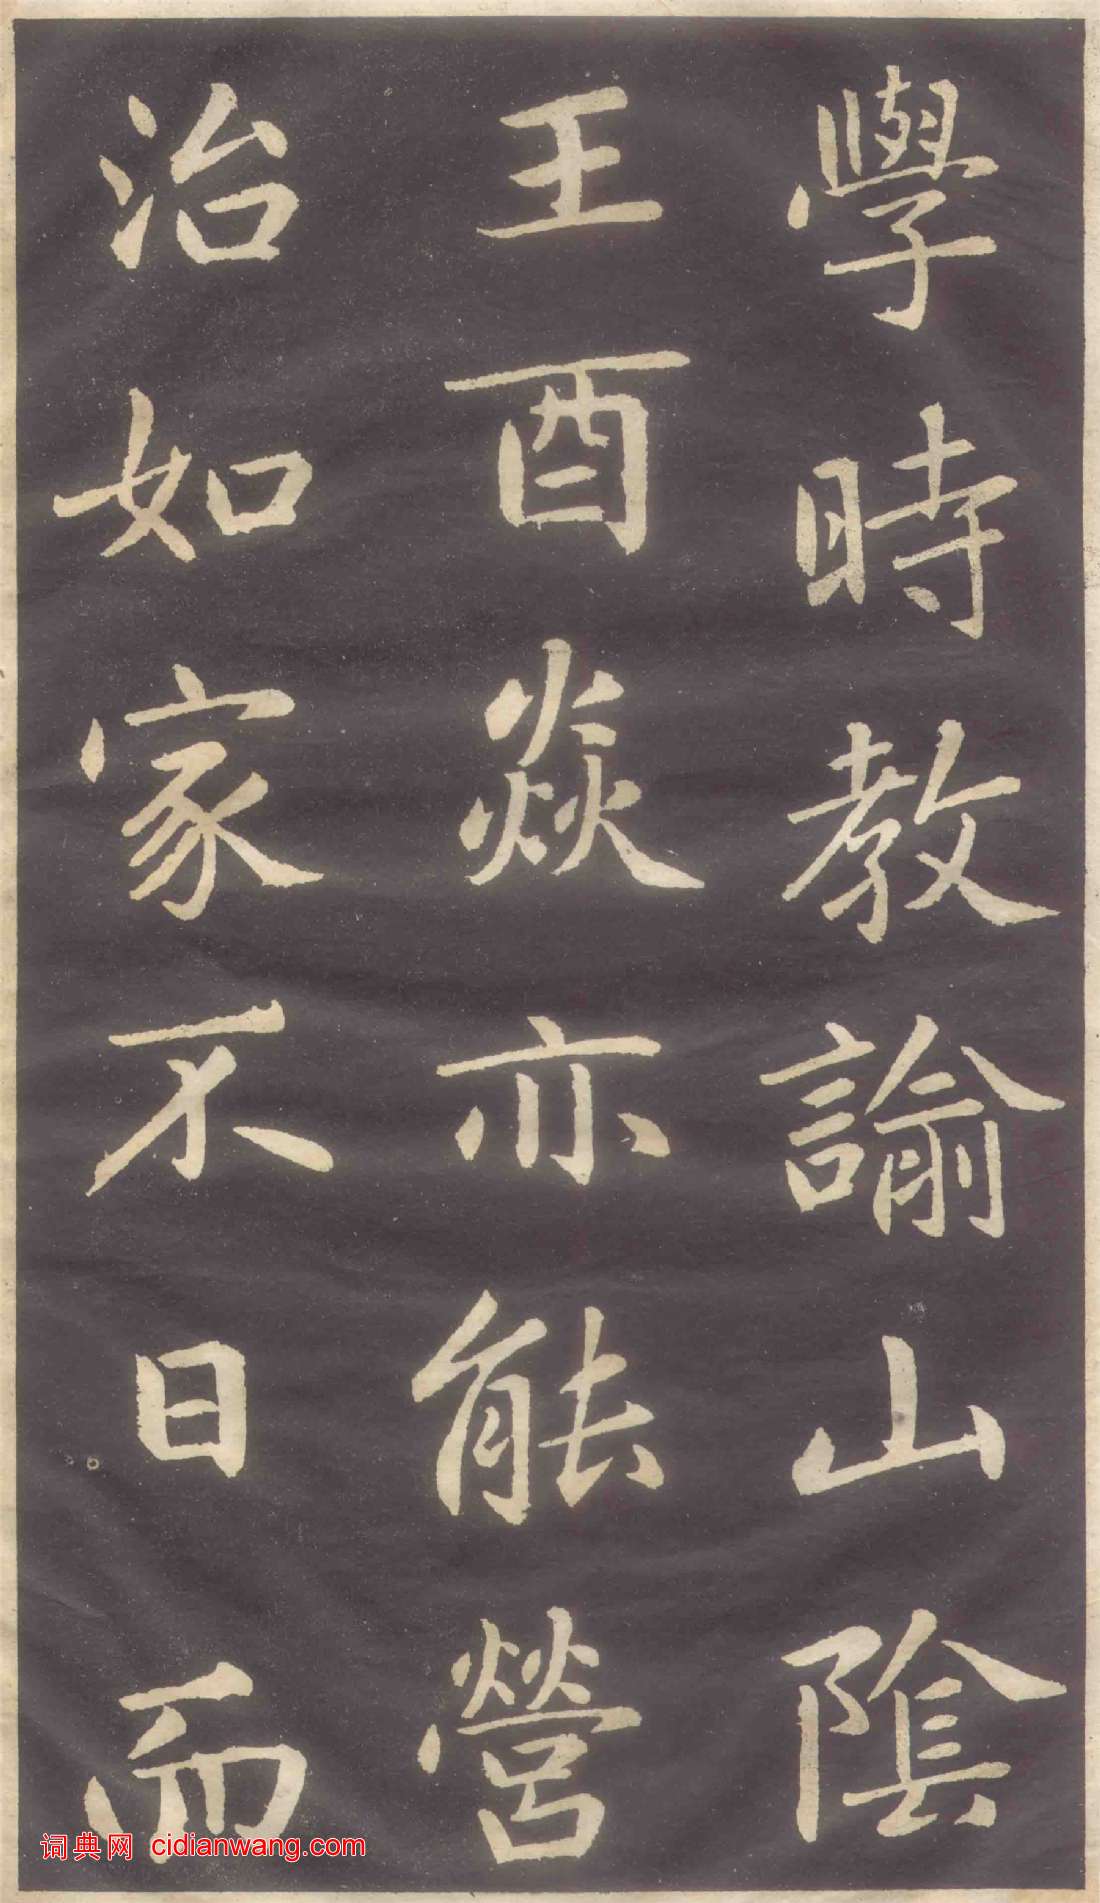 學時教諭山陰
王酉焱亦能營
治如家不日而
词典网 cidianwang.com